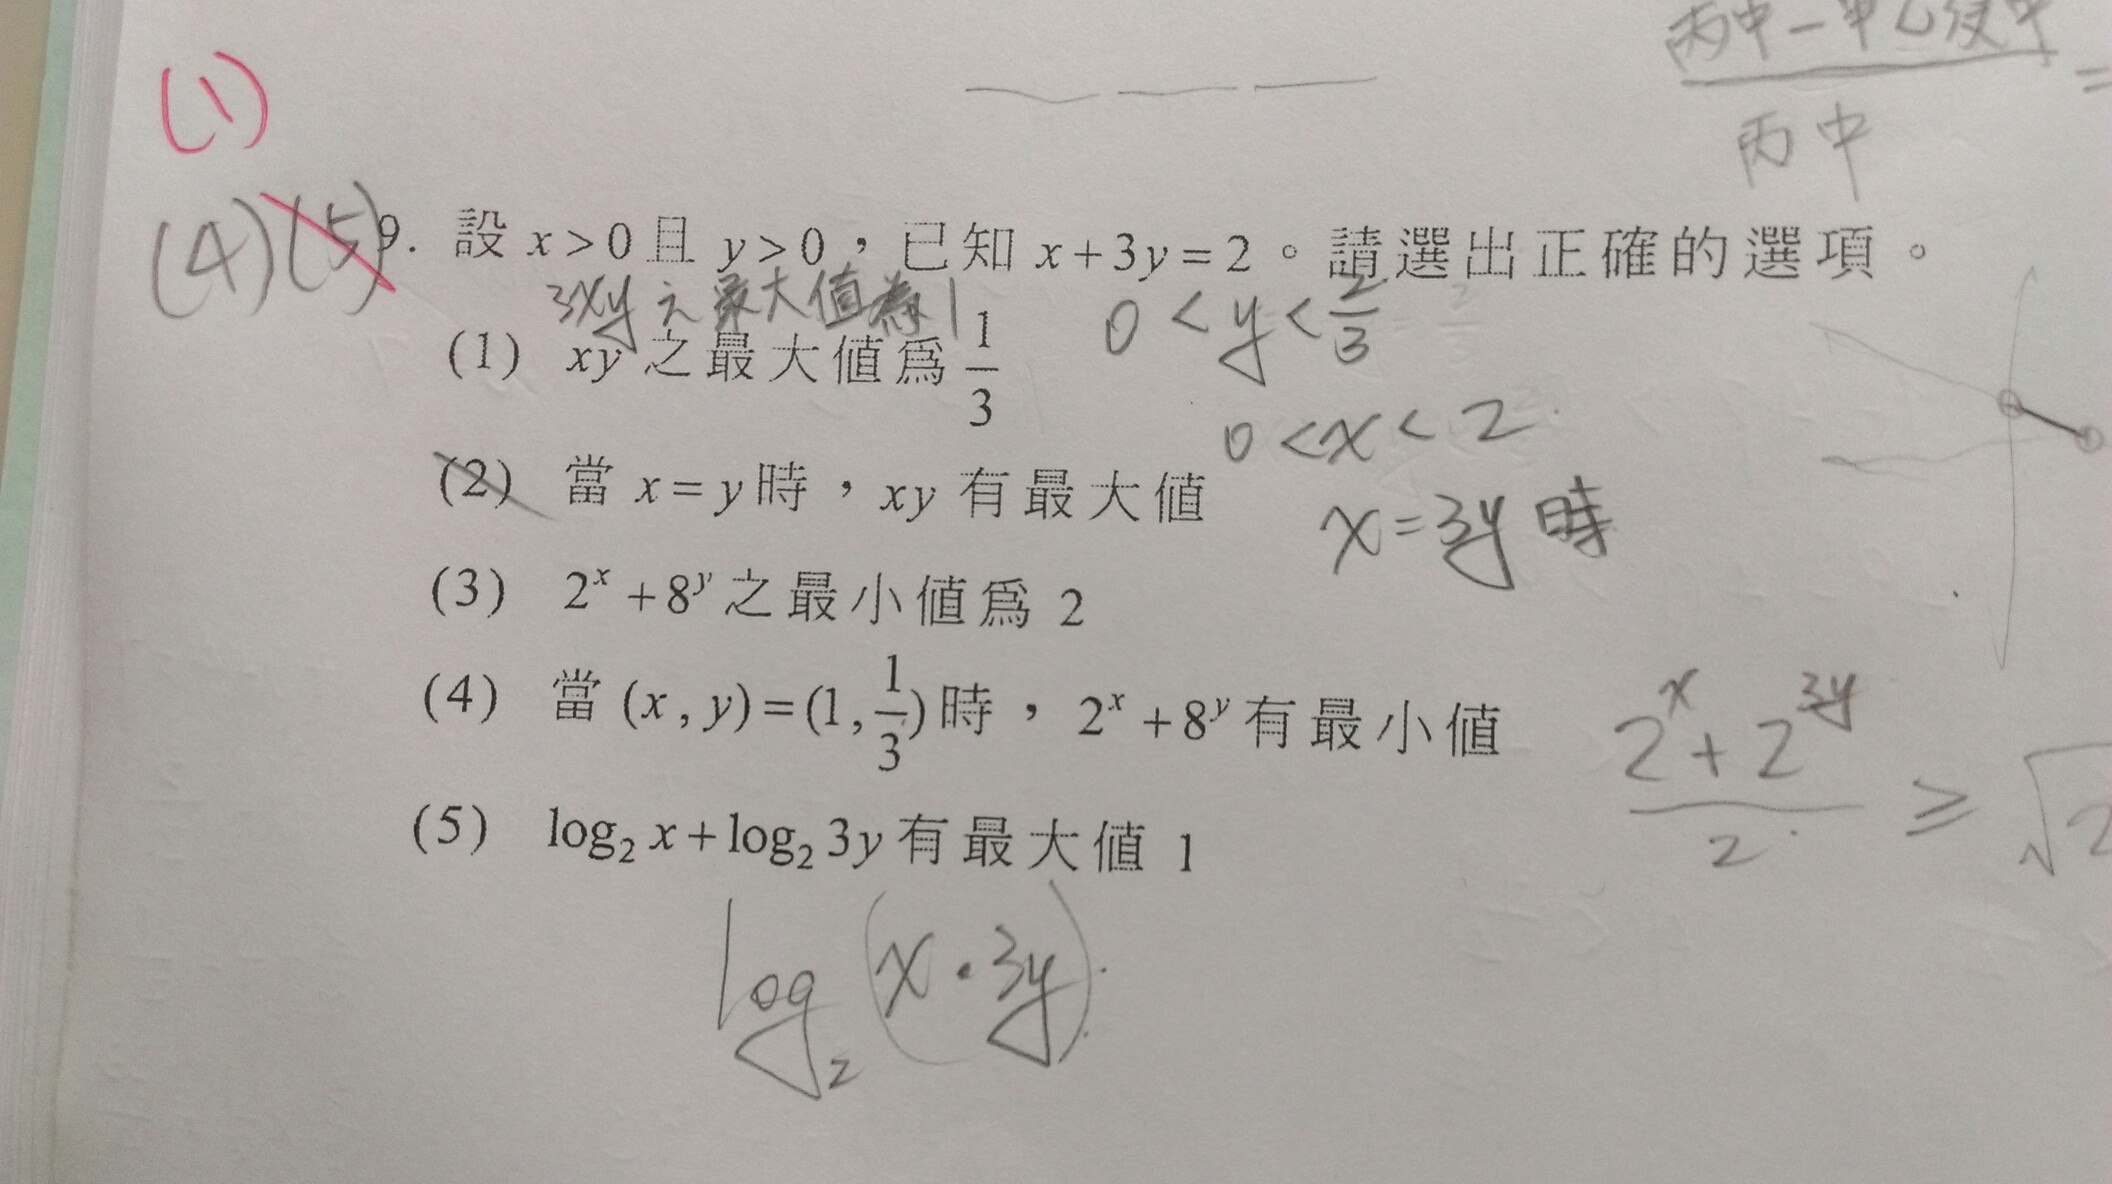 丙中-甲乙
丙中
=
(1)
(4)(5)9. 設 x>0 且 y>0，已知 x+3y=2。請選出正確的選項。
3xy之最大值為1
0<y<2/3
(1) xy 之最大值爲 1/3
0<x<2
(2) 當 x=y 時，xy 有最大值
x=3y 時
(3) 2^x+8^y 之最小值爲 2
(4) 當 (x, y)=(1, 1/3) 時，2^x+8^y 有最小值
(2^x+2^3y)/2 ≥ √2
(5) log₂ x+log₂ 3y 有最大值 1
log₂(x·3y)